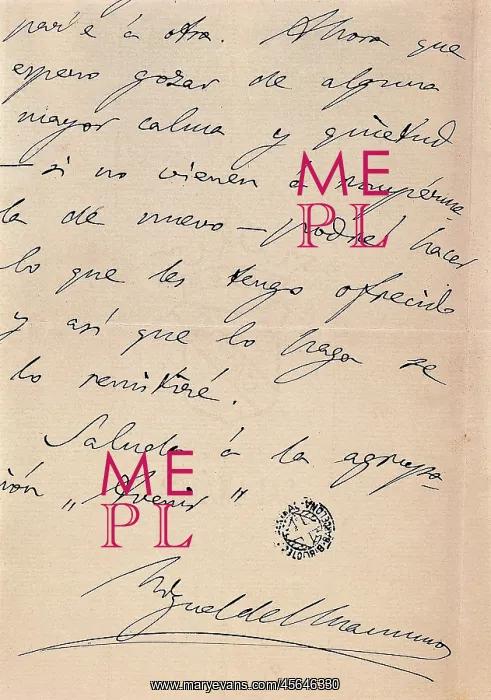 parte á otra. Ahora que
espero gozar de alguna
mayor calma y quietud
— si no vienen á rompérme-
la de nuevo — podré hacer
lo que les tengo ofrecido
y así que lo haga se
lo remitiré.
Saluda á la agrupa-
ción „ Avenir "
Miguel de Unamuno
ME
PL
ME
PL
www.maryevans.com/45646330